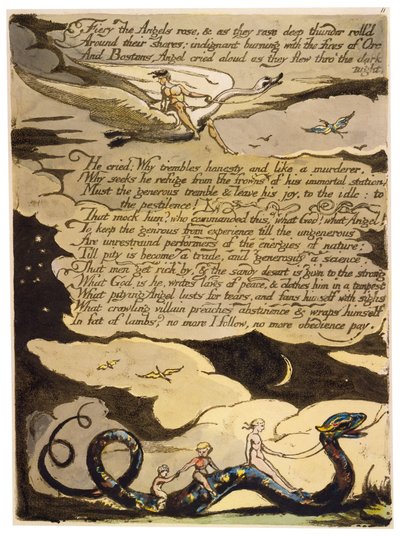 11
Fiery the Angels rose, & as they rose deep thunder roll'd
Around their shores: indignant burning with the fires of Orc
And Bostons Angel cried aloud as they flew thro' the dark
night.
He cried: Why trembles honesty and like a murderer,
Why seeks he refuge from the frowns of his immortal station!
Must the generous tremble & leave his joy, to the idle: to
the pestilence!
That mock him? who commanded this? what God? what Angel!
To keep the gen'rous from experience till the ungenerous
Are unrestraind performers of the energies of nature;
Till pity is become a trade, and generosity a science,
That men get rich by, & the sandy desart is giv'n to the strong
What God is he, writes laws of peace, & clothes him in a tempest
What pitying Angel lusts for tears, and fans himself with sighs
What crawling villain preaches abstinence & wraps himself
In fat of lambs? no more I follow, no more obedience pay.